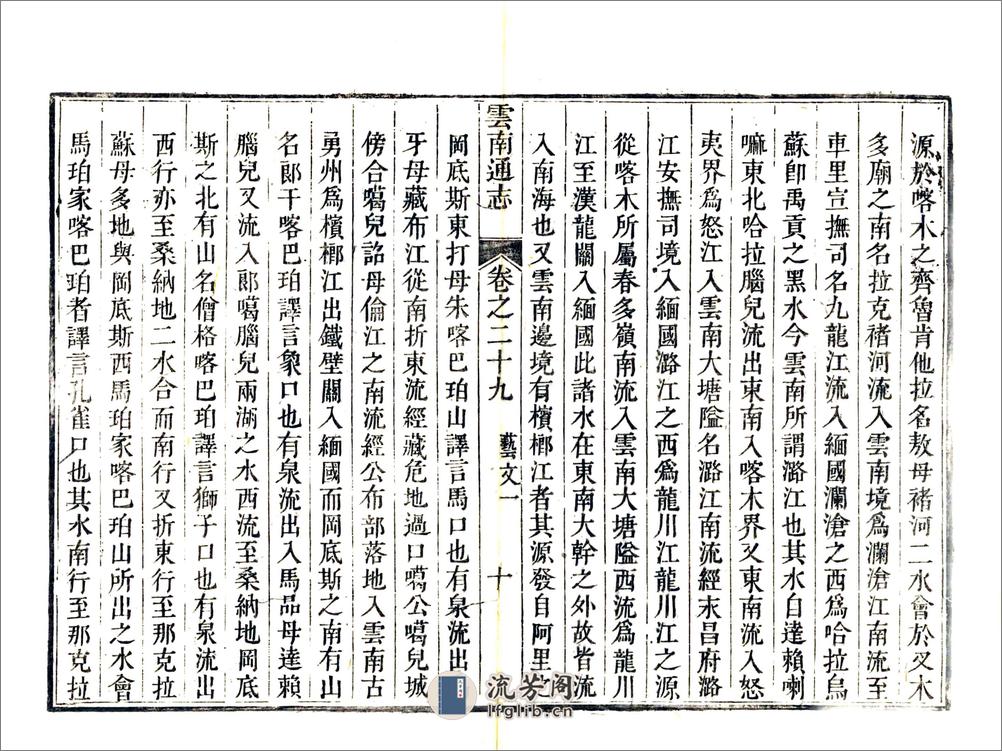 源於喀木之齊魯肯他拉名敖母褚河二水會於叉木
多廟之南名拉克褚河流入雲南境爲瀾滄江南流至
車里宣撫司名九龍江流入緬國瀾滄之西爲哈拉烏
蘇卽禹貢之黑水今雲南所謂潞江也其水自達賴喇
嘛東北哈拉腦兒流出東南入喀木界又東南流入怒
夷界爲怒江入雲南大塘隘名潞江南流經永昌府潞
江安撫司境入緬國潞江之西爲龍川江龍川江之源
從喀木所屬春多嶺南流入雲南大塘隘西流爲龍川
江至漢龍關入緬國此諸水在東南大幹之外故皆流
入南海也又雲南邊境有檳榔江者其源發自阿里
雲南通志
卷之二十九
藝文一
十
岡底斯東打母朱喀巴珀山譯言馬口也有泉流出
牙母藏布江從南折東流經藏危地過口噶公噶兒城
傍合噶兒詔母倫江之南流經公布部落地入雲南古
勇州爲檳榔江出鐵壁關入緬國而岡底斯之南有山
名郞干喀巴珀譯言象口也有泉流出入馬品母達賴
腦兒又流入郞噶腦兒兩湖之水西流至桑納地岡底
斯之北有山名僧格喀巴珀譯言獅子口也有泉流出
西行亦至桑納地二水合而南行又折東行至那克拉
蘇母多地與岡底斯西馬珀家喀巴珀山所出之水會
馬珀家喀巴珀者譯言孔雀口也其水南行至那克拉
流芳阁
lfglib.cn